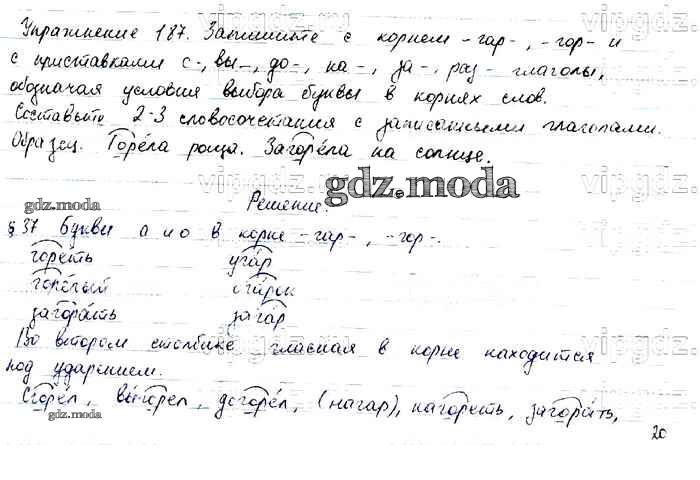 Упражнение 187. Запишите с корнем -гар-, -гор- и
с приставками с-, вы-, до-, на-, за-, раз- глаголы,
обозначая условия выбора буквы в корнях слов.
Составьте 2-3 словосочетания с записанными глаголами.
Образец. Горе́ла роща. Загоре́ла на солнце.
gdz.moda
Решение.
§ 37 Буквы а и о в корне -гар-, -гор-.
горе́ть уга́р
горе́лый ога́рок
загора́ть зага́р
Во втором столбике гласная в корне находится
под ударением.
Сгоре́л, вы́горел, догоре́л, (нагар), нагореть,
20